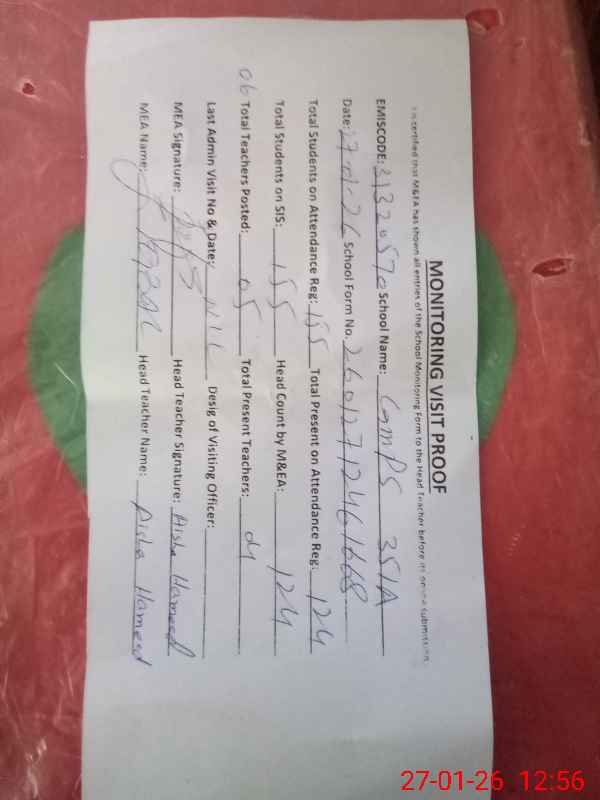 MONITORING VISIT PROOF
It is certified that M&EA has shown all entries of the School Monitoring Form to the Head Teacher before its online submission
EMISCODE: 31320570 School Name: GMPS 351A
Date: 27-01-26 School Form No. 2601271246
Total Students on Attendance Reg: 155 Total Present on Attendance Reg: 124
Total Students on SIS: 155 Head Count by M&EA: 124
06 Total Teachers Posted: 05 Total Present Teachers: 04
Last Admin Visit No & Date: NIL Desig of Visiting Officer:
MEA Signature: Head Teacher Signature: Aisha Hameed
MEA Name: Head Teacher Name: Aisha Hameed
27-01-26 12:56